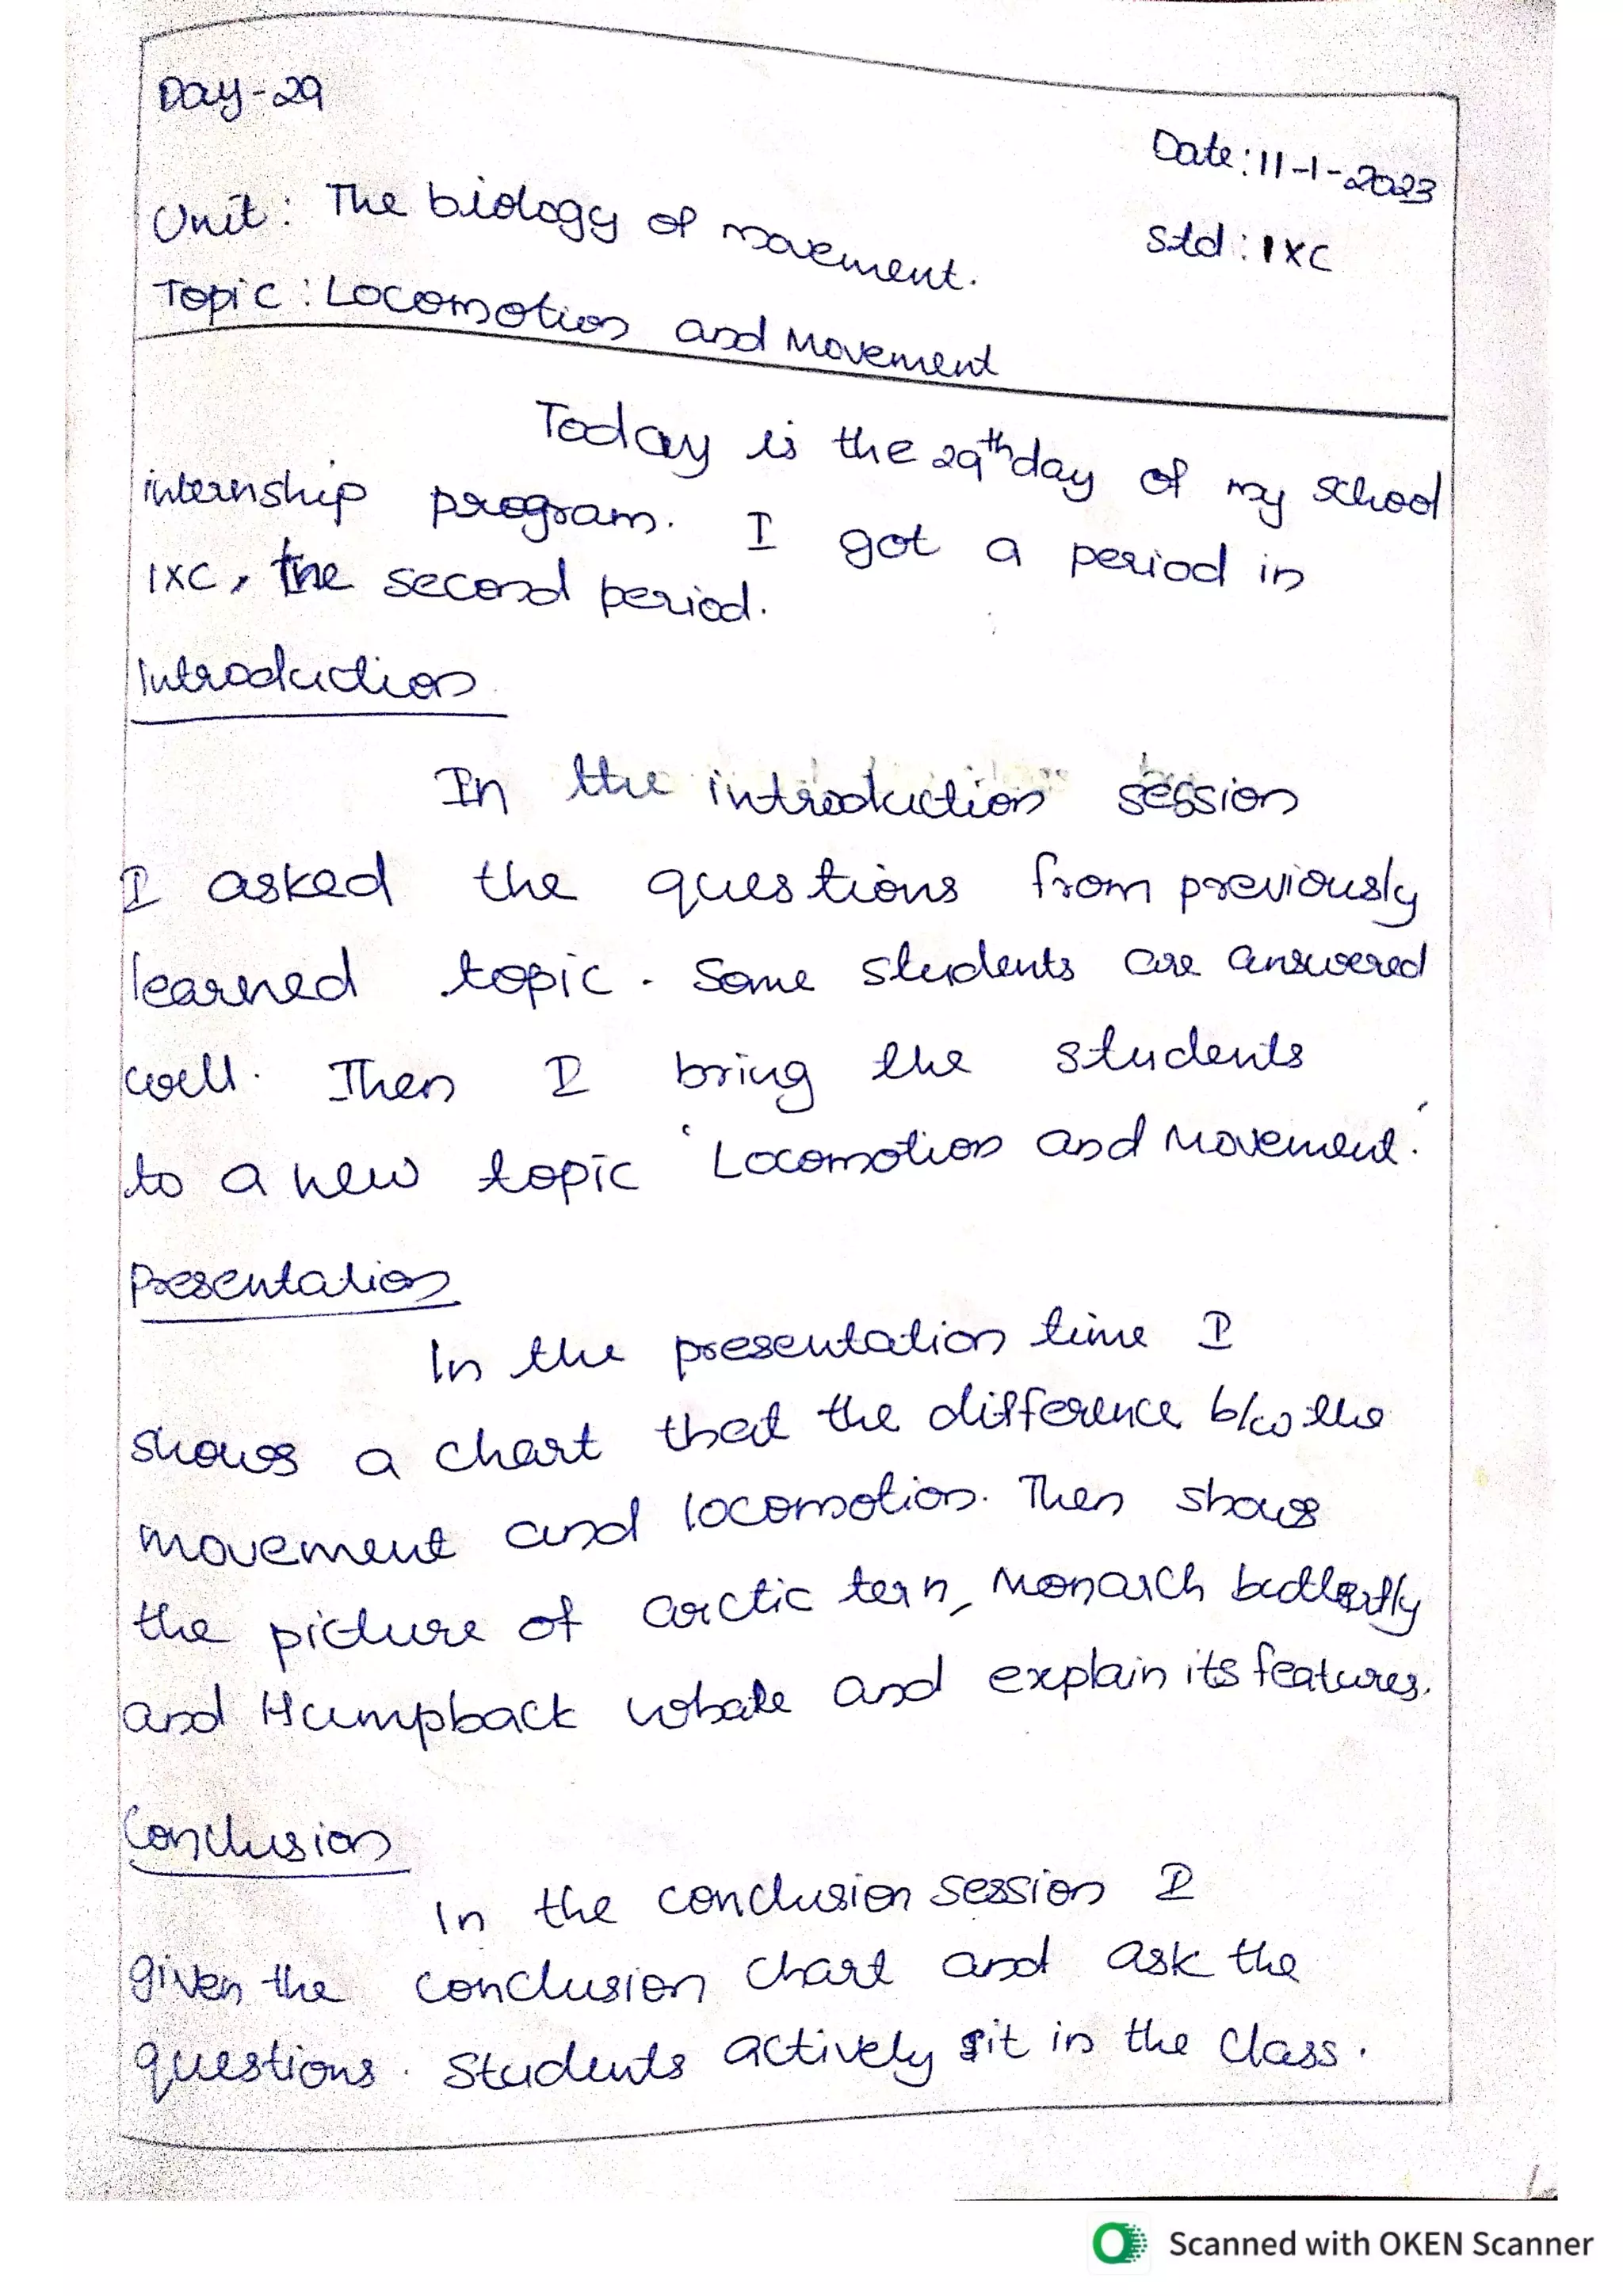 Day-29
Date: 11-1-2023
Unit: The biology of movement.
Std: IXC
Topic: Locomotion and Movement
Today is the 29th day of my school
internship program. I got a period in
IXC, the second period.
Introduction
In the introduction session
I asked the questions from previously
learned topic. Some students are answered
well. Then I bring the students
to a new topic 'Locomotion and Movement.'
Presentation
In the presentation time I
shows a chart that the difference b/w the
movement and locomotion. Then shows
the picture of arctic tern, Monarch butterfly
and Humpback whale and explain its features.
Conclusion
In the conclusion session I
given the conclusion chart and ask the
questions. Students actively sit in the class.
Scanned with OKEN Scanner